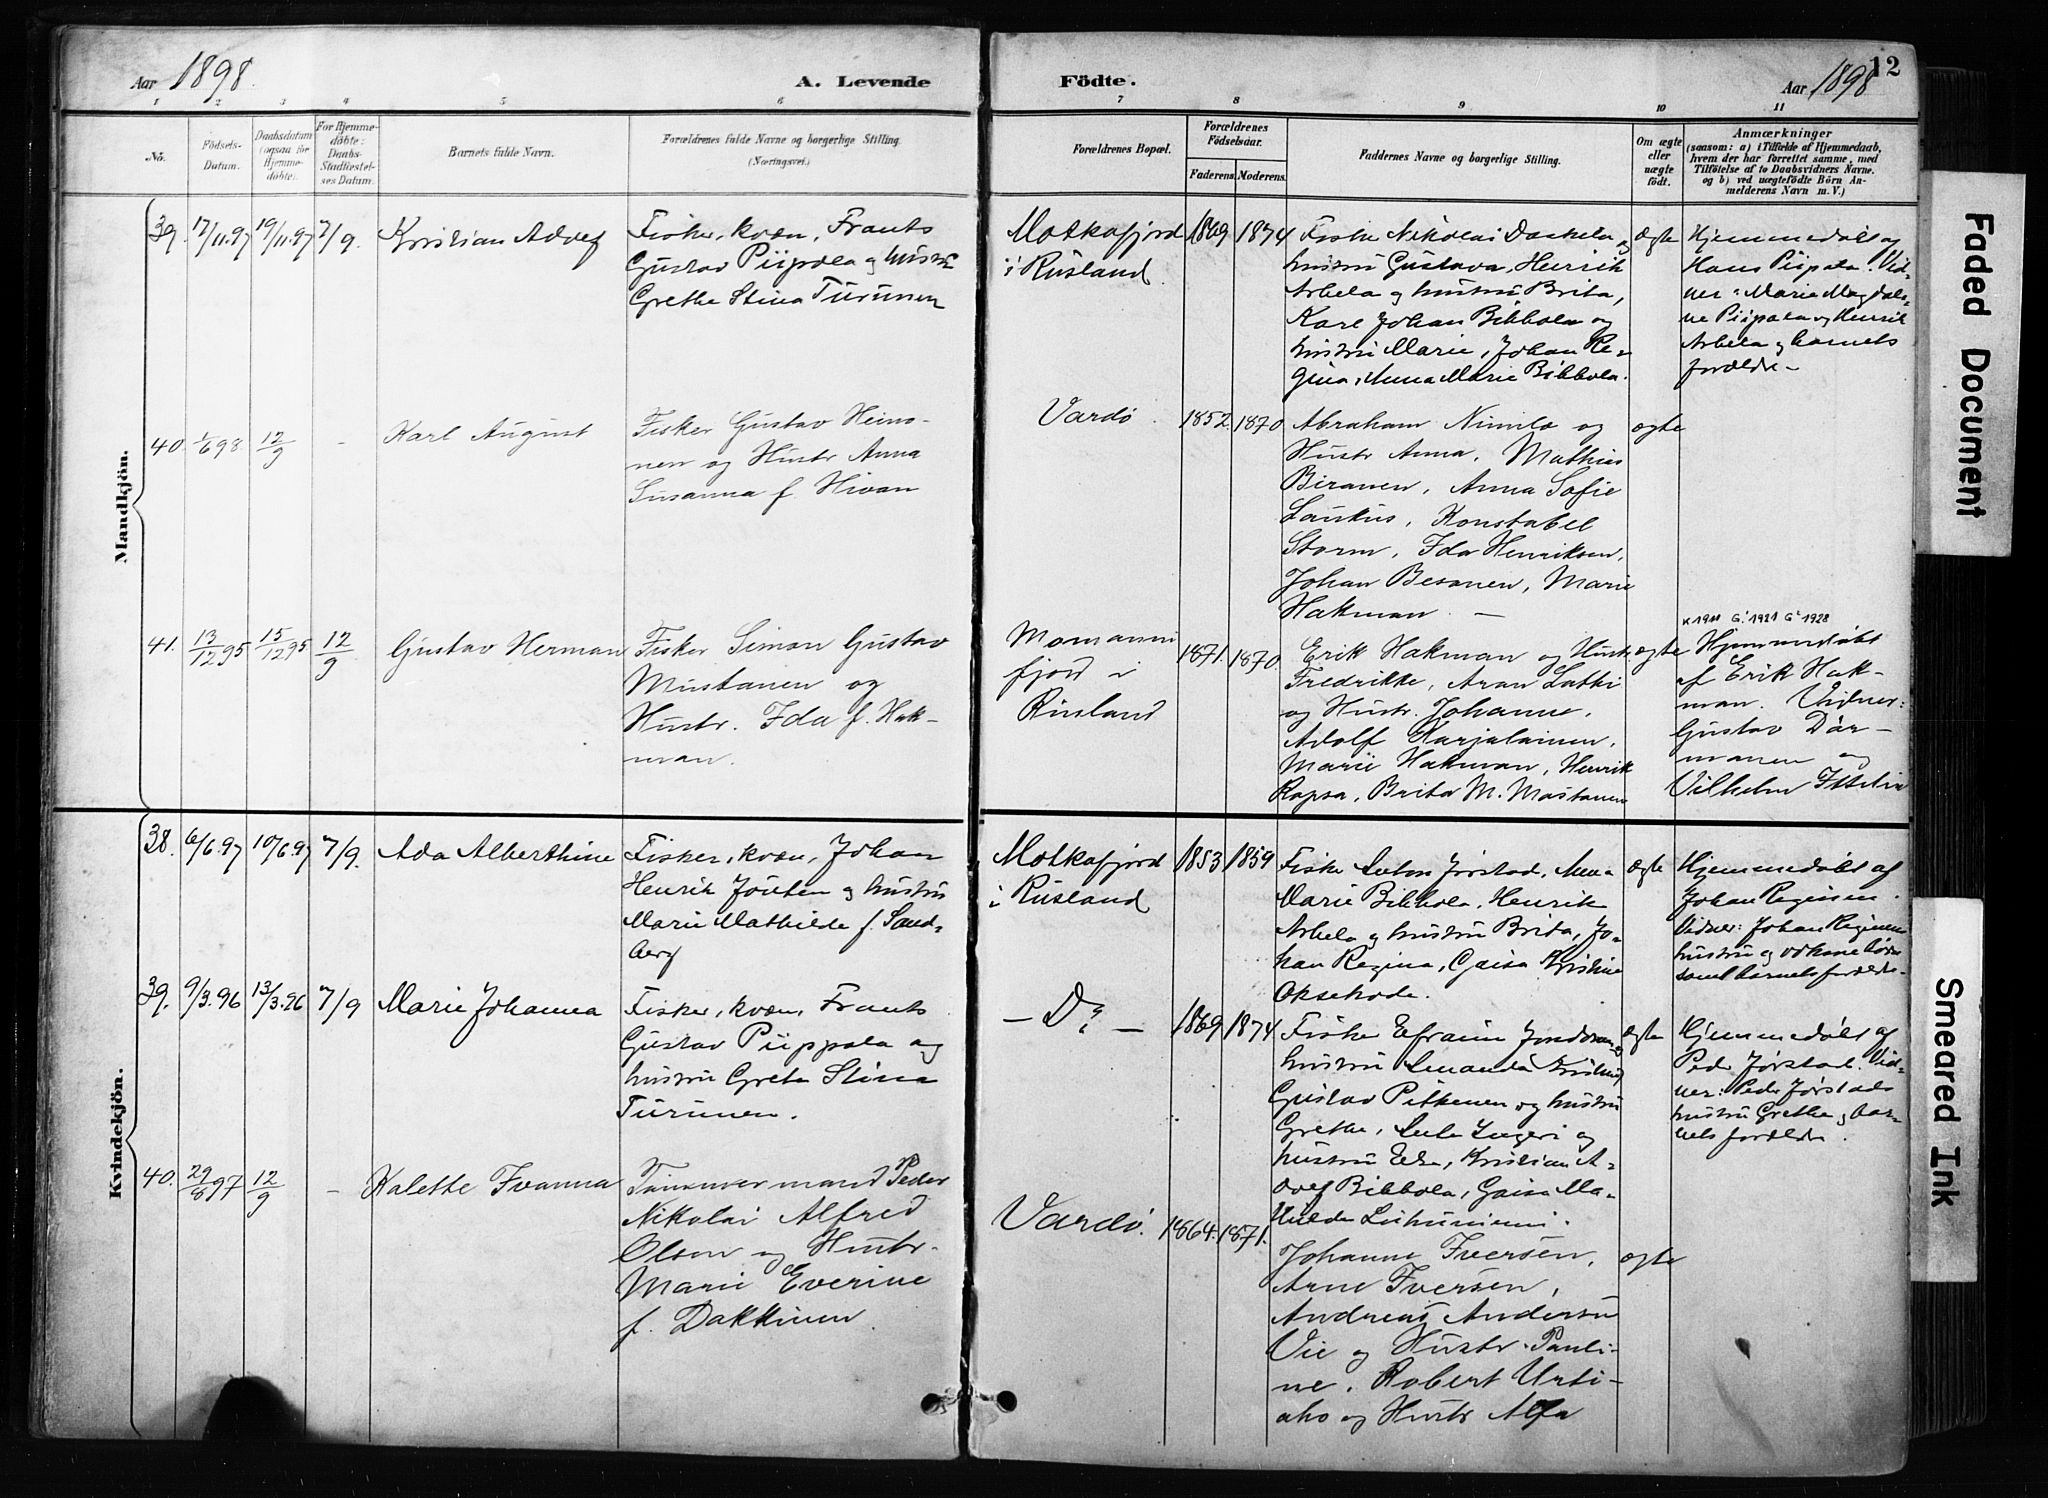 Aar 1898.
A. Levende
Födte.
Aar 1898
12
1 2 3 4 5 6 7 8 9 10 11
No.
Födsels-
Datum.
Daabsdatum
(ogsaa for
Hjemme-
döbte).
For Hjemme-
döbte:
Daabs-
Stadfæstel-
ses Datum.
Barnets fulde Navn.
Forældrenes fulde Navne og borgerlige Stilling.
(Næringsvei.)
Forældrenes Bopæl.
Forældrenes
Födselsaar.
Faderens. Moderens.
Faddernes Navne og borgerlige Stilling.
Om ægte
eller
uægte
födt.
Anmærkninger
(saasom: a) i Tilfælde af Hjemmedaab,
hvem der har forrettet samme, med
Tilföielse af to Daabsvidners Navne.
og b) ved uægtefödte Börn An-
melderens Navn m. V.)
Mandkjön.
39. 17/11.97 19/11.97 7/9. Kristian Adolf
Fisker, kvæn, Frants
Gustav Piipola og hustru
Grethe Stina Turunen
Motkafjord
i Rusland.
1869 1874
Fisker Nikolai Daskela og
hustru Gustava, Henrik
Arbela og hustru Brita,
Karl Johan Bibbola og
hustru Marie, Johan Re-
gina, Anna Marie Bibbola.
Ægte
Hjemmedøbt af
Hans Piipola. Vid-
ner: Marie Magdale-
ne Piipola og Henrik
Arbela og barnets
forældre –
40. 1/6 98. 12/9 – Karl August
Fisker Gustav Heino-
nen og Hustr Anna
Susanna f. Hivan
Vardø.
1852. 1870.
Abraham Nimilo og
Hustr Anna, Mathias
Biranen, Anna Sofie
Laukus, Konstabel
Storm, Ida Henriksen,
Johan Besanen, Marie
Hakman. –
ægte
41. 13/12 95 15/12 95 12/9 Gustav Herman
Fisker Simon Gustav
Mustanen og
Hustr. Ida f. Hak-
man.
Momanni
fjord i
Rusland
1871. 1870.
Erik Hakman og Hustr.
Fredrikke, Aran Lathi
og Hustr. Johanne,
Adolf Karjalainen,
Marie Hakman, Henrik
Rapsa, Brita M. Mostanen
ægte
K 1911 G. 1921 G² 1928
Hjemmedøbt
af Erik Hak-
man. Vidner:
Gustav Dar-
manen og
Vilhelm
Kvindekjön.
38. 6/6.97 10/6.97 7/9. Ada Alberthine
Fisker, kvæn, Johan
Henrik Jouten og hustru
Marie Mathilde f. Sand-
berg
Motkafjord
i Rusland
1853 1859
Fisker Anton Jørstad, Anna
Marie Bibbola, Henrik
Arbela og hustru Brita, Jo-
han Regina, Gaisa Kristine
Oksekode.
Ægte
Hjemmedøbt af
Johan Reginen.
Vidner: Johan Reginens
hustru og
samt barnets forældre.
39. 9/3.96 13/3.96 7/9 Marie Johanna
Fisker, kvæn, Frants
Gustav Piippola og
hustru Greta Stina
Turunen.
– Do –
1869 1874
Fisker Efraim
hustru Amanda
Gustav Pitkenen og hustru
Grethe, Lule Ingeri og
hustru Else, Kristian A-
dolf Bibbola, Gaisa Ma-
thilde
Ægte
Hjemmedøbt af
Peder Jørstad. Vid-
ner: Peder Jørstads
hustru Grethe og bar-
nets forældre.
40. 29/8 97 12/9 – Kalette Ivanna
Tømmermand Peder
Nikolai Alfred
Olson og Hustr.
Marie Everine
f. Dakkinen.
Vardø.
1864. 1871.
Johanne Iversen,
Arne Iversen,
Andreas Andersen
Vie og Hustr. Pauli-
ne, Robert Urti-
aho og Hustr Alfa
ægte
Faded Document
Smeared Ink